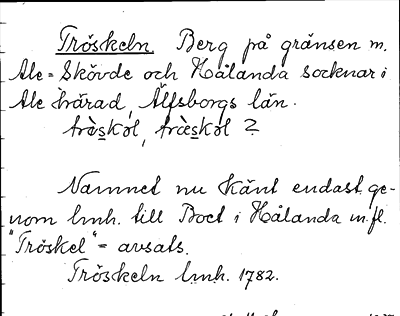 Tröskeln. Berg på gränsen m.
Ale-Skövde och Hålanda socknar i
Ale härad, Älfsborgs län.
Namnet nu känt endast ge-
nom lmh. till Boet i Hålanda m.fl.
"Tröskel" = avsats.
Tröskeln lmh. 1782.